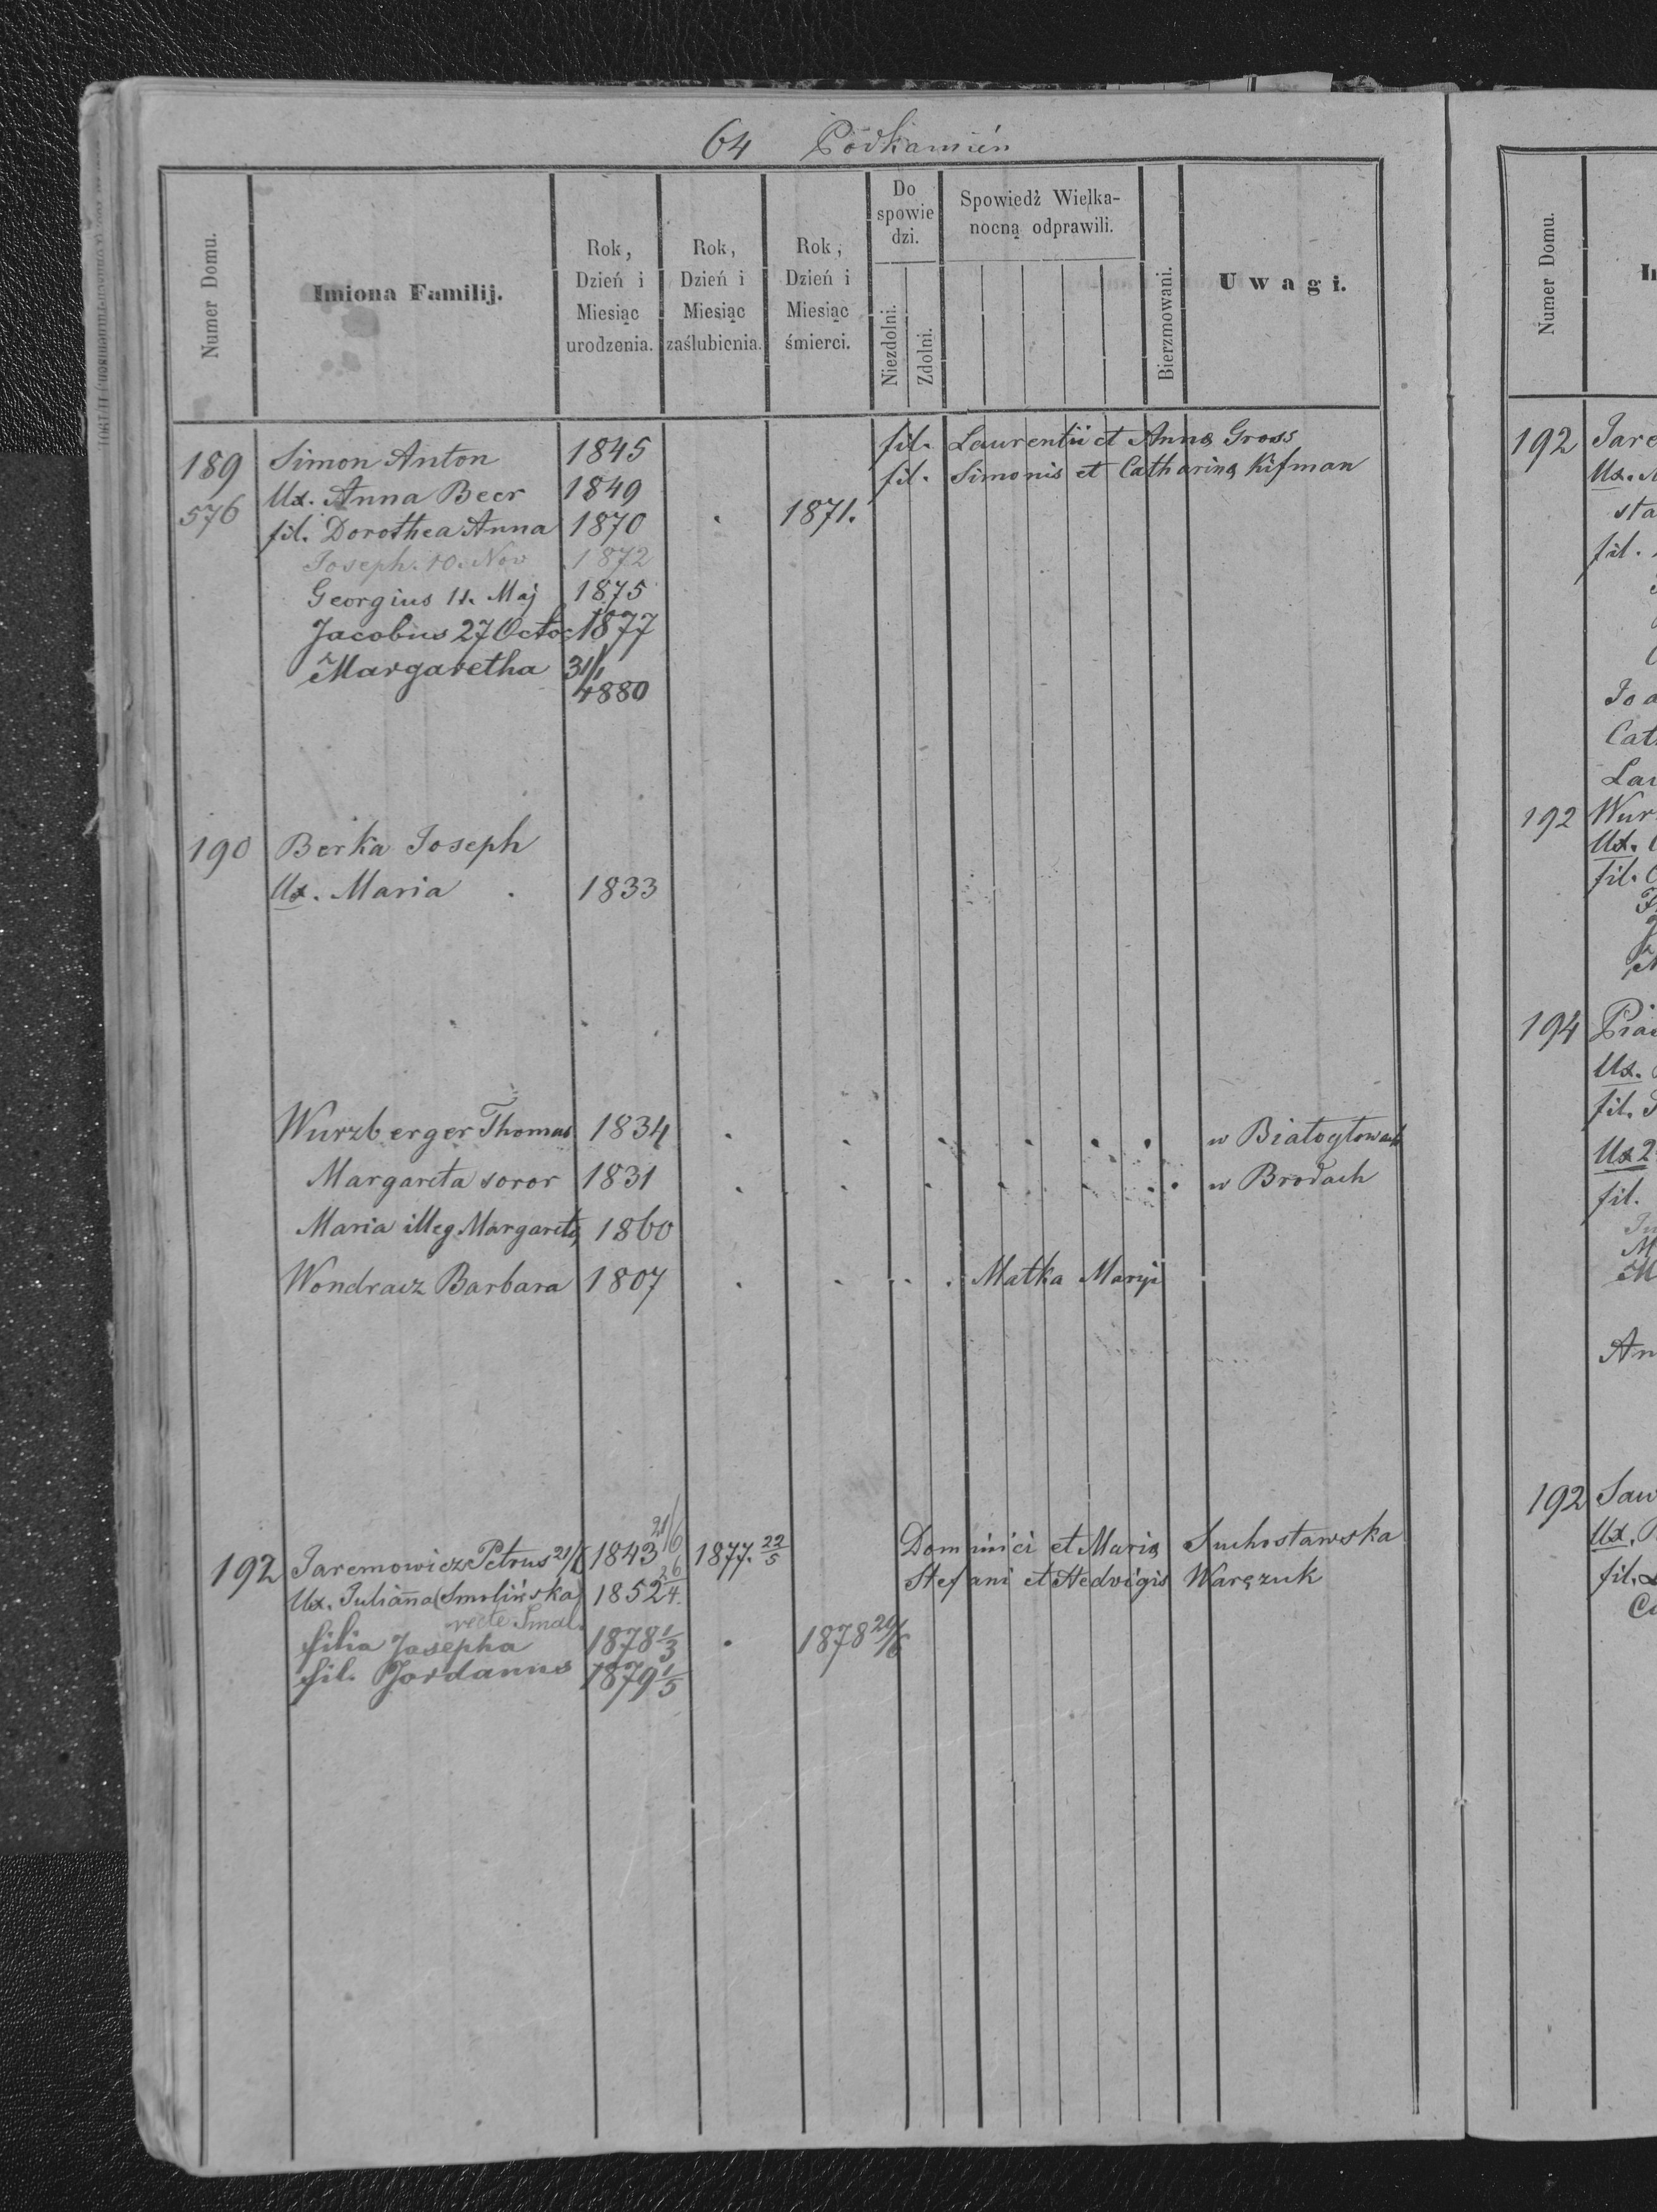 64 Podkamień
Numer Domu.
Imiona Familij.
Rok, Dzień i Miesiąc urodzenia.
Rok, Dzień i Miesiąc zaślubienia.
Rok, Dzień i Miesiąc śmierci.
Do spowie dzi.
Niezdolni.
Zdolni.
Spowiedź Wielka-
nocną odprawili.
Bierzmowani.
Uwagi.
189 Simon Anton 1845 fil. Laurentii et Annę Gross
576 Ux. Anna Beer 1849 fil. Simonis et Catharinę Kifman
fil. Dorothea Anna 1870 . 1871.
Joseph. 10. Nov 1872
Georgius 11. Maj 1875
Jacobus 27 Octo 1877
Margaretha 31/1
1880
190 Berka Joseph
Ux. Maria . 1833
Wurzberger Thomas 1834 w Białogłowach
Margareta soror 1831 w Brodach
Maria illeg Margaretę 1860
Wondracz Barbara 1807 Matka Maryi
192 Jaremowicz Petrus 21/6 1843 21/6 1877. 22/5 Dominici et Marię Suchostawska
Ux. Julianna (Smolińska) 1852 26/4. Stefani et Hedvigis Waręzuk
recte Smal.
filia Josepha 1878 1/3 . 1878 20/6
fil. Jordanus 1879 1/5
Numer Domu.
192
Ux.
fil.
192
Ux.
fil.
194
Ux.
fil.
Ux 2
fil.
192
Ux.
fil.